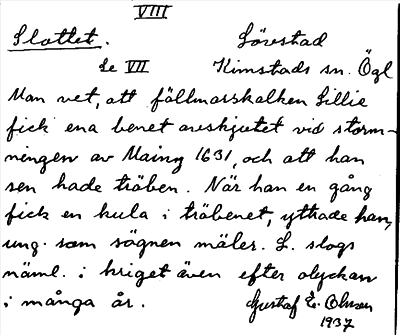 VIII
Slottet. Lövestad
Se VII Kimstads sn. Ögl
Man vet, att fältmarskalken Lillie
fick ena benet avskjutet vid storm-
ningen av Mainz 1631, och att han
sen hade träben. När han en gång
fick en kula i träbenet, yttrade han,
ung. som sägnen mäler. L. slogs
näml. i kriget även efter olyckan
i många år. Gustaf E. Olsson
1937